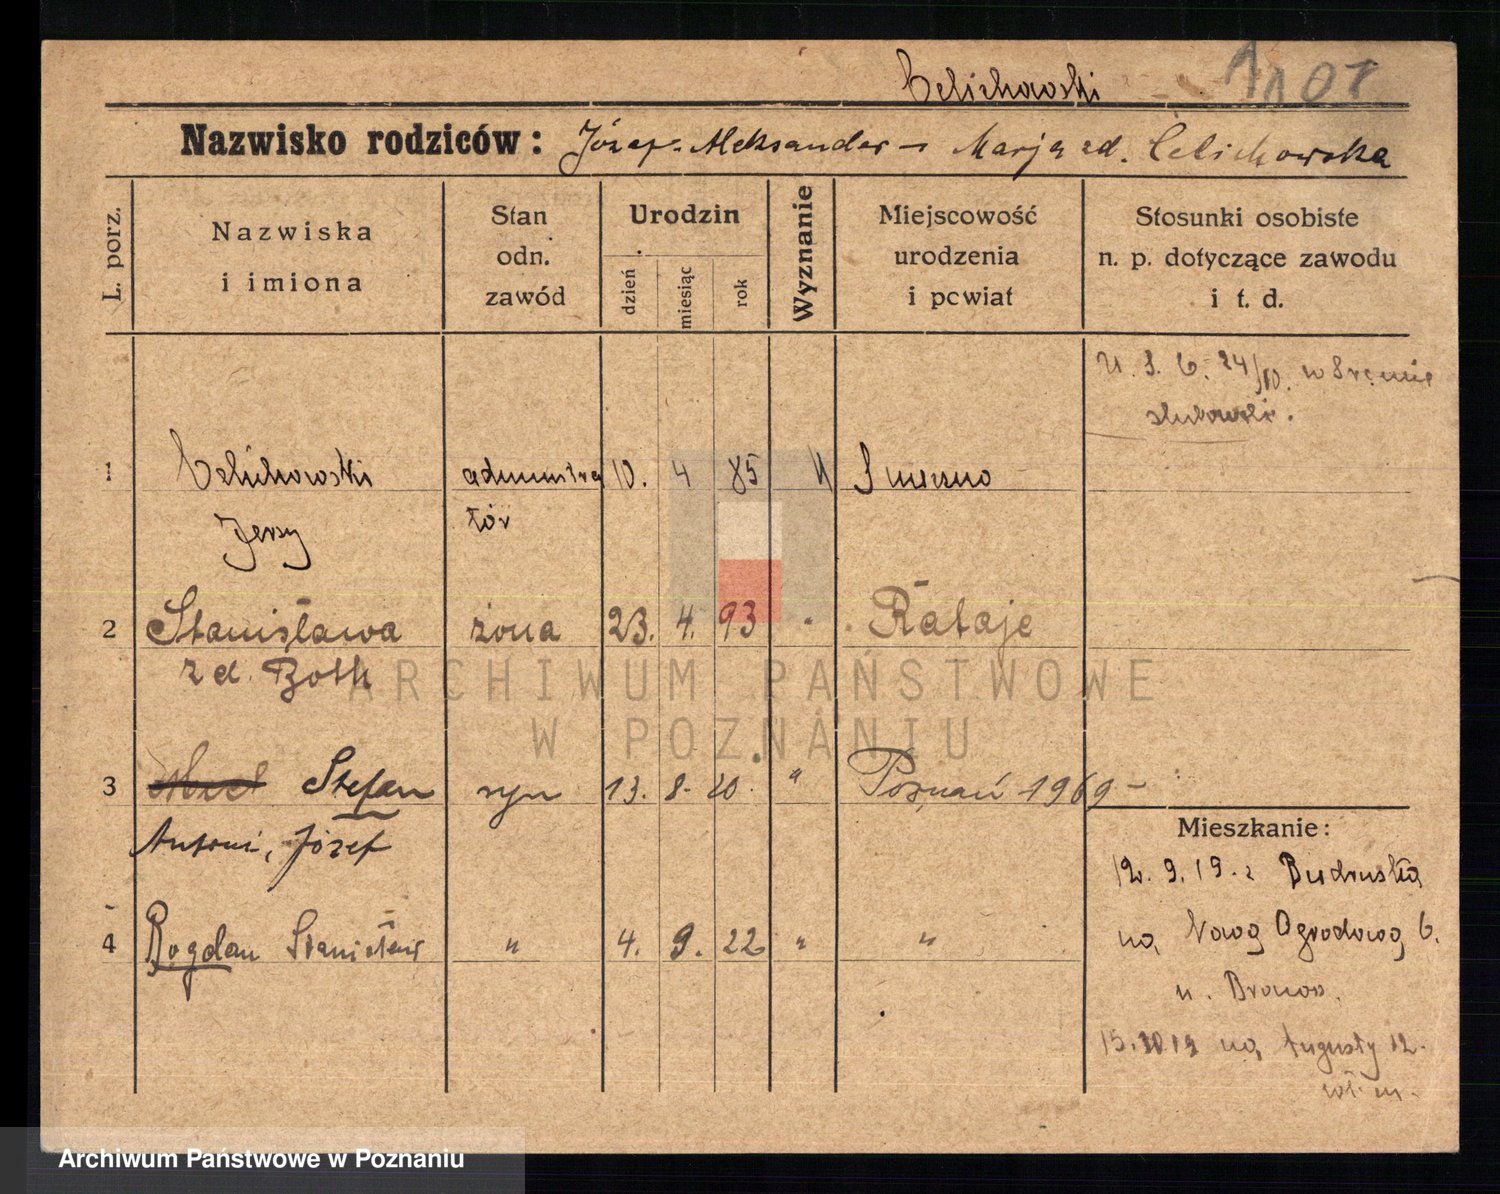 Celichowski 1101
Nazwisko rodziców: Józef-Aleksander – Marja zd. Celichowska
L. porz.
Nazwiska
i imiona
Stan
odn.
zawód
Urodzin
dzień
miesiąc
rok
Wyznanie
Miejscowość
urodzenia
i powiat
Stosunki osobiste
n. p. dotyczące zawodu
i t. d.
24/10. w Śremie
1 Celichowski administra 10. 4 85
Jerzy tór
2 Stanisława żona 23. 4. 93 " Rataje
zd. Both
3 Stefan syn 13. 8. 20. " Poznań 1969 –
Antoni, Józef
Mieszkanie:
12. 9. 19. z Budruska
4 Bogdan Stanisław " 4. 9. 22 " "
na Nową Ogrodową 6.
u.
15.10.19 na Augusty 12.
ARCHIWUM PAŃSTWOWE
W POZNANIU
Archiwum Państwowe w Poznaniu